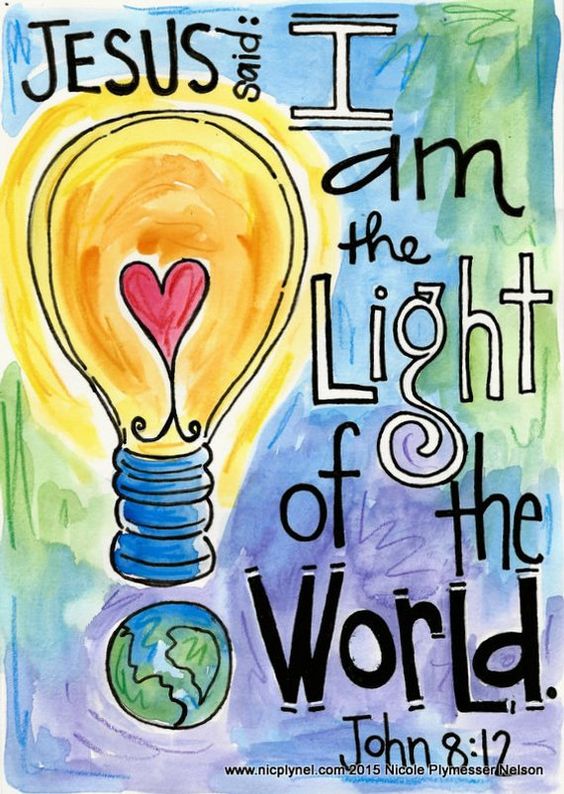 JESUS said:
I
am
the
Light
of
the
World.
John 8:12
www.nicplynel.com 2015 Nicole Plymesser Nelson